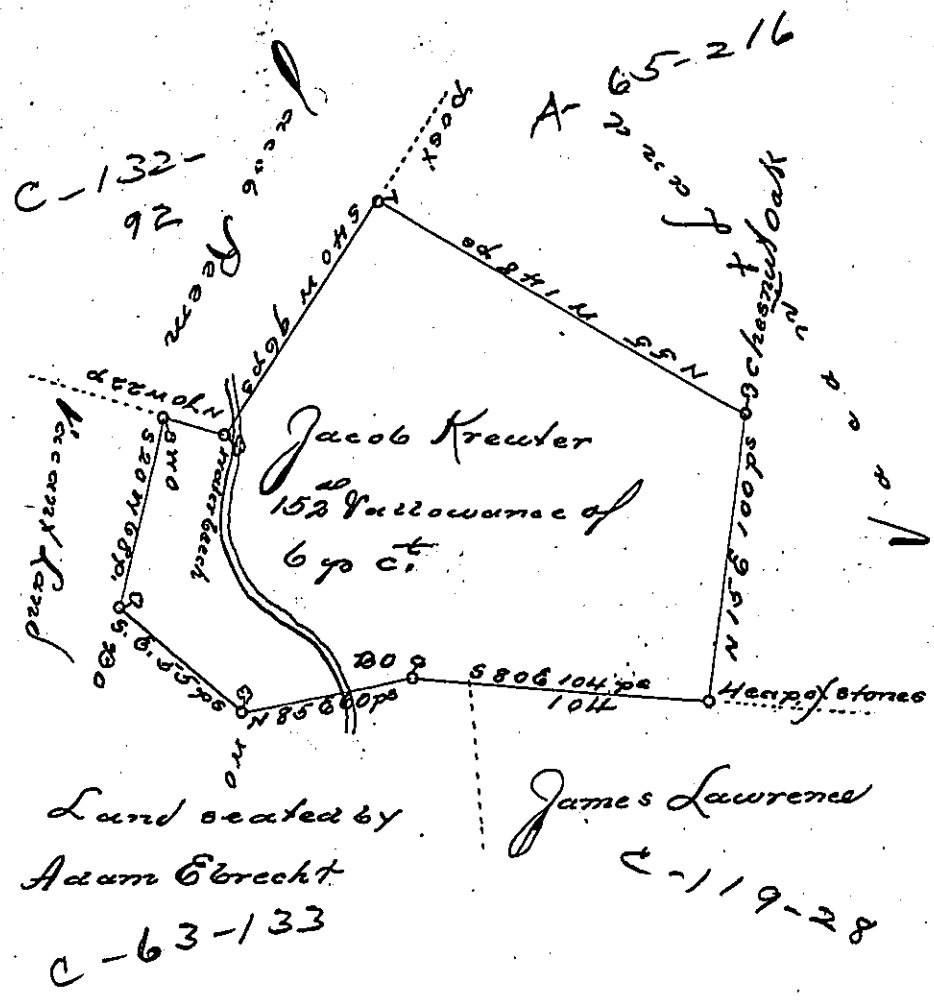 A-65-216
C-132-
92
Jacob Reem
Post
Chesnut oak
S40 W 96ps
N 55 W 148 ps
N 70 W 22 p
Vaccant Land
WO
S20 W 68p.
water beech
Jacob Kreuter
152 a & allowance of
6 p ct.
N 15 E 100 ps
BO
S. E. 55 ps
WO
N 85 E 60 ps
BO
S 80 E 104 ps
104
Heap of stones
Land seated by
Adam Ebrecht
C-63-133
James Lawrence
C-119-28